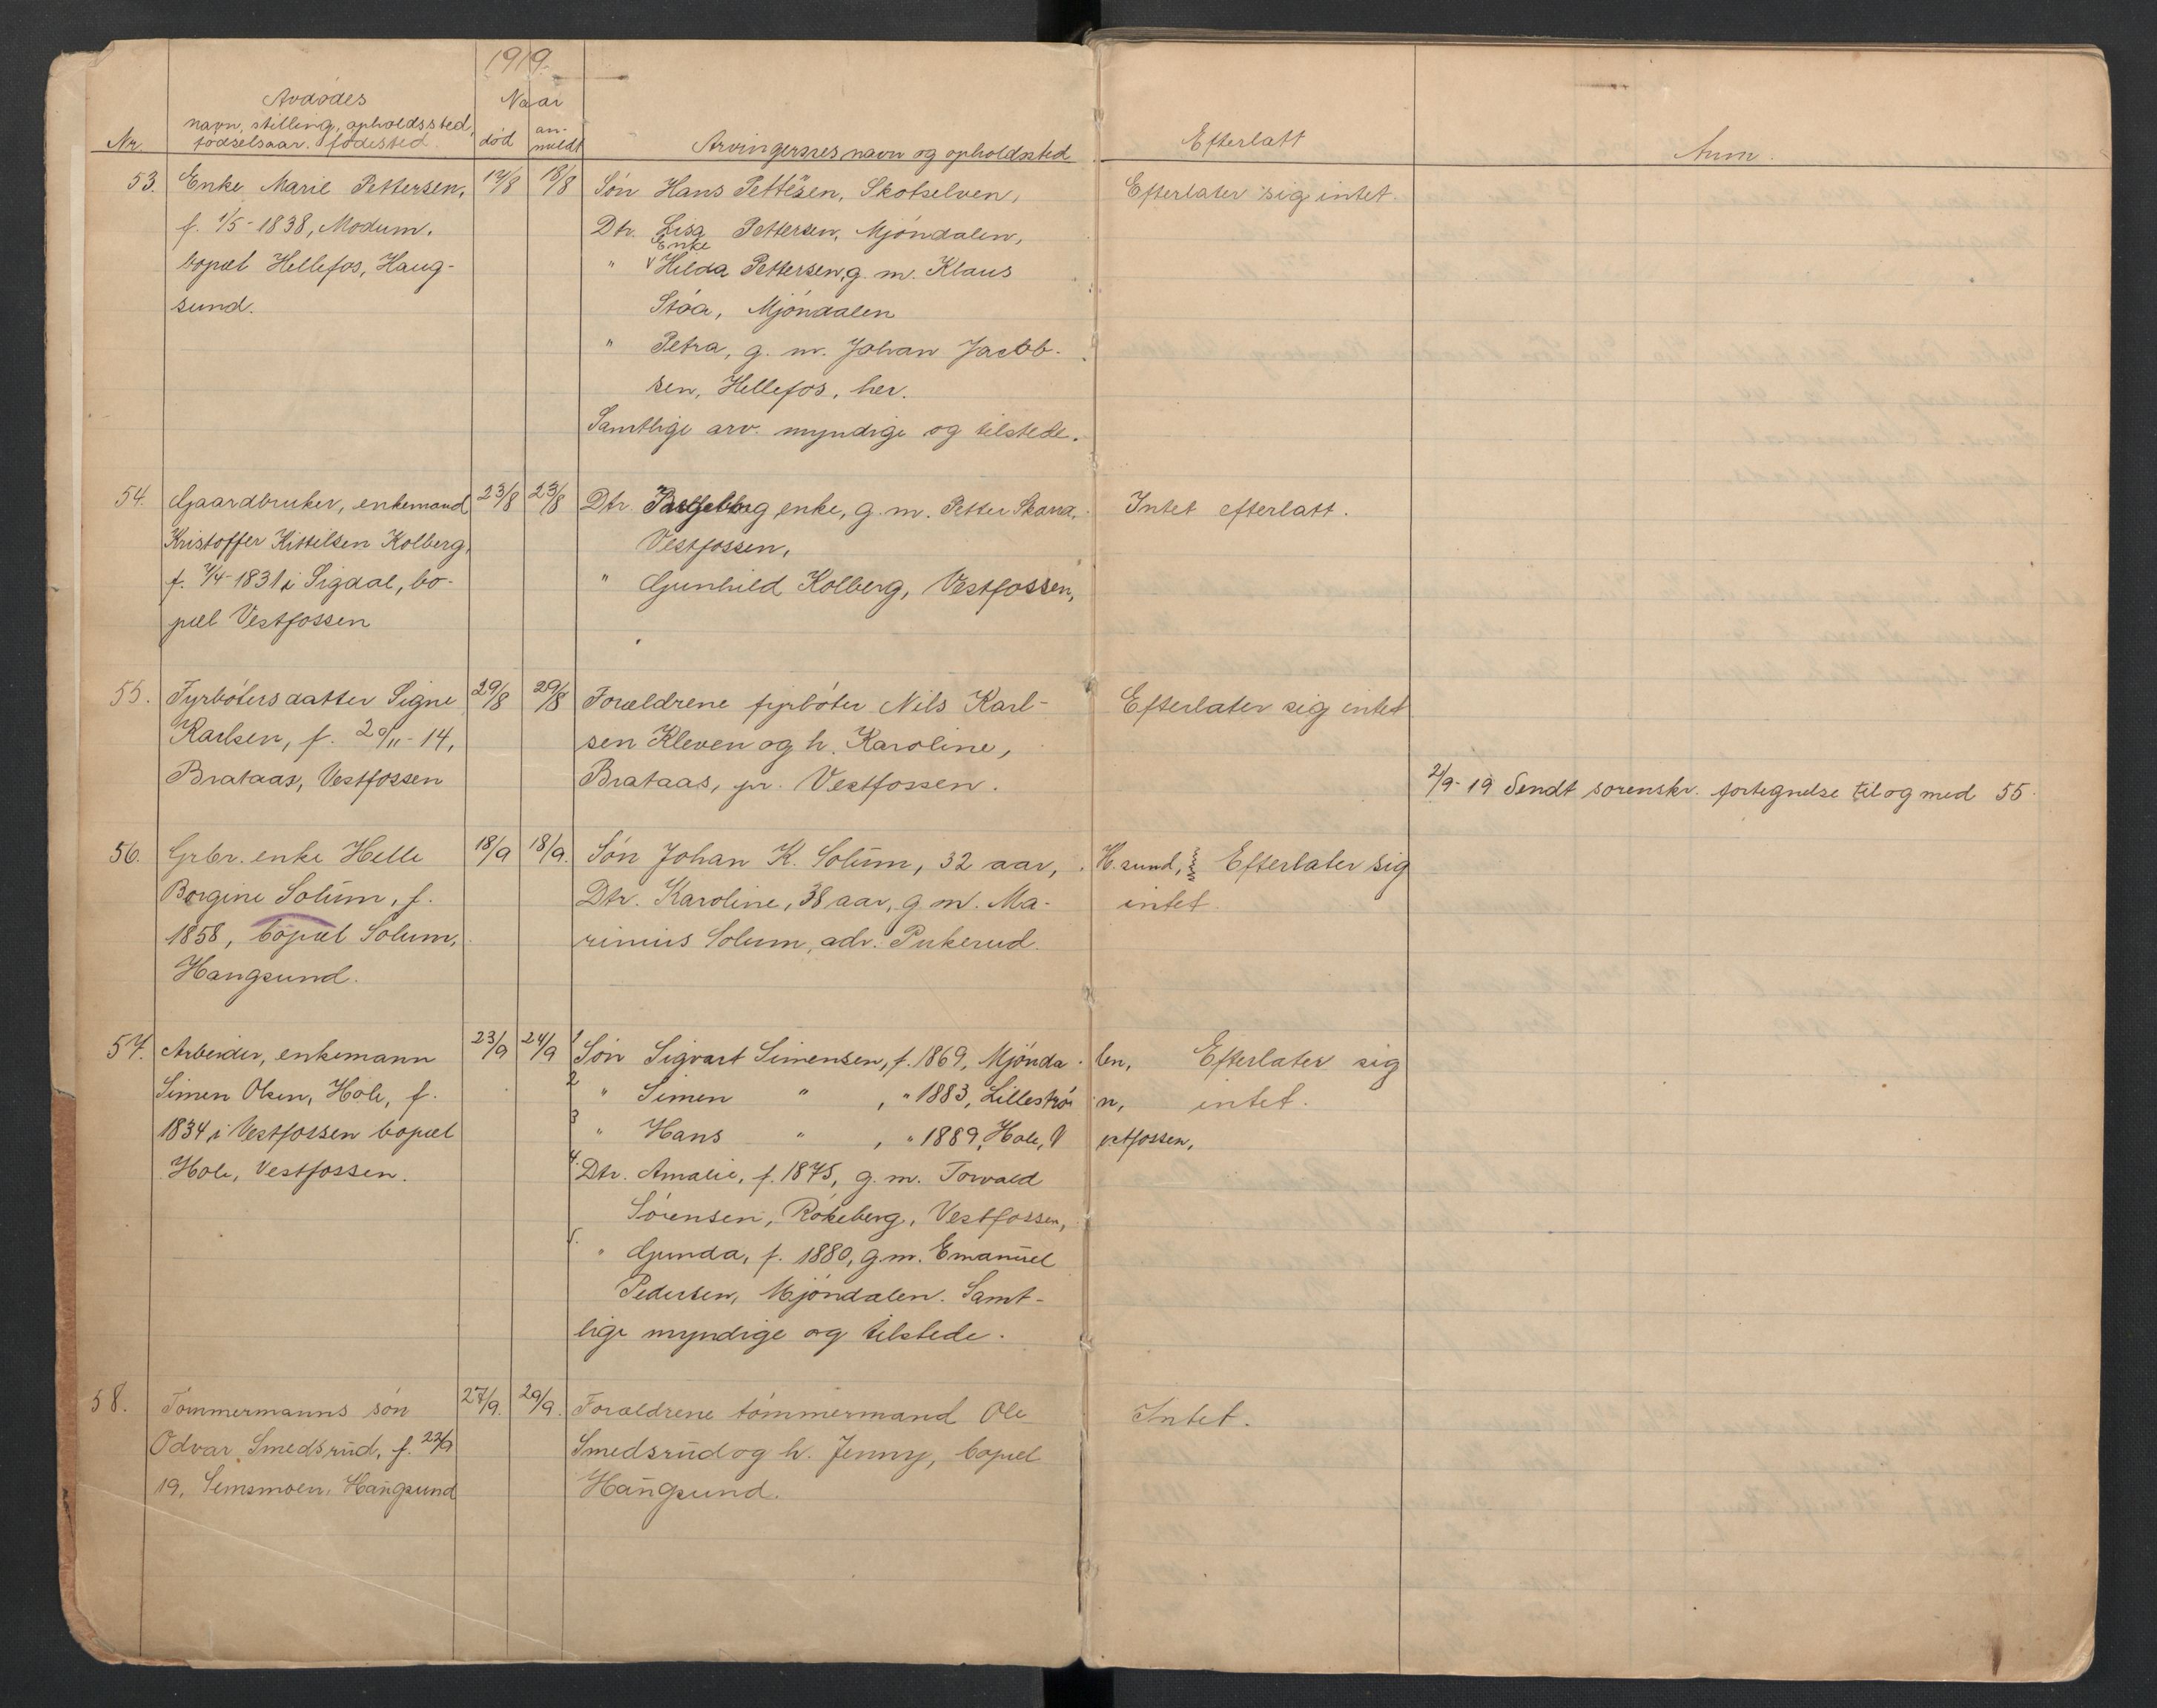 1919.
Nr.
Avdødes
navn, stilling, opholdssted,
fødselsaar. fødested.
Naar
død
an-
meldt
Arvingernes navn og opholdssted
Efterlatt
Anm.
53. Enke Marie Pettersen,
f. 1/5-1838, Modum,
bopæl Hellefos, Haug-
sund.
17/8 18/8
Søn Hans Pettersen, Skotselven,
Dtr. Lisa Pettersen, Mjöndalen,
Enke
" Hilda Pettersen, g. m. Klaus
Stöa, Mjöndalen
" Petra, g. m. Johan Jacob-
sen, Hellefos, her.
Samtlige arv. myndige og tilstede.
Efterlater sig intet.
54. Gaardbruker, enkemand
Kristoffer Kittilsen Kolberg,
f. 7/4-1831 i Sigdal, bo-
pæl Vestfossen
23/8 23/8
Dtr. Ingeborg, enke, g. m. Petter Skara,
Vestfossen,
" Gunhild Kolberg, Vestfossen,
Intet efterlatt.
55. Fyrböters datter Signe
Karlsen, f. 20/11-14,
Brataas, Vestfossen
29/8 29/8
Forældrene fyrböter Nils Karl-
sen Kleven og h. Karoline,
Brataas, pr. Vestfossen.
Efterlater sig intet
2/9-19 Sendt sorenskr. fortegnelse til og med 55.
56. Grbr. enke Helle
Borgine Solum, f.
1858, bopæl Solum,
Haugsund.
18/9 18/9.
Søn Johan K. Solum, 32 aar, H.sund,
Dtr. Karoline, 38 aar, g. m. Ma-
rinius Solum, adr. Pukerud.
Efterlater sig
intet.
57. Arbeider, enkemann
Simen Olsen, Hole, f.
1834 i Vestfossen bopæl
Hole, Vestfossen.
23/9 24/9
1 Søn Sigvart Simensen, f. 1869, Mjöndalen,
2 " Simen " , " 1883, Lilleströn,
3 " Hans " , " 1889, Hole, Vestfossen,
4. Dtr. Amalie, f. 1875, g. m. Torvald
Sörensen, Rökeberg, Vestfossen,
5. " Gunda, f. 1880, g. m. Emanuel
Pedersen, Mjöndalen. Samt-
lige myndige og tilstede.
Efterlater sig
intet.
58. Tömmermanns sön
Odvar Smedsrud, f. 22/9
19, Semsmoen, Haugsund
27/9. 29/9.
Forældrene tömmermand Ole
Smedsrud og h. Jenny, bopæl
Haugsund.
Intet.